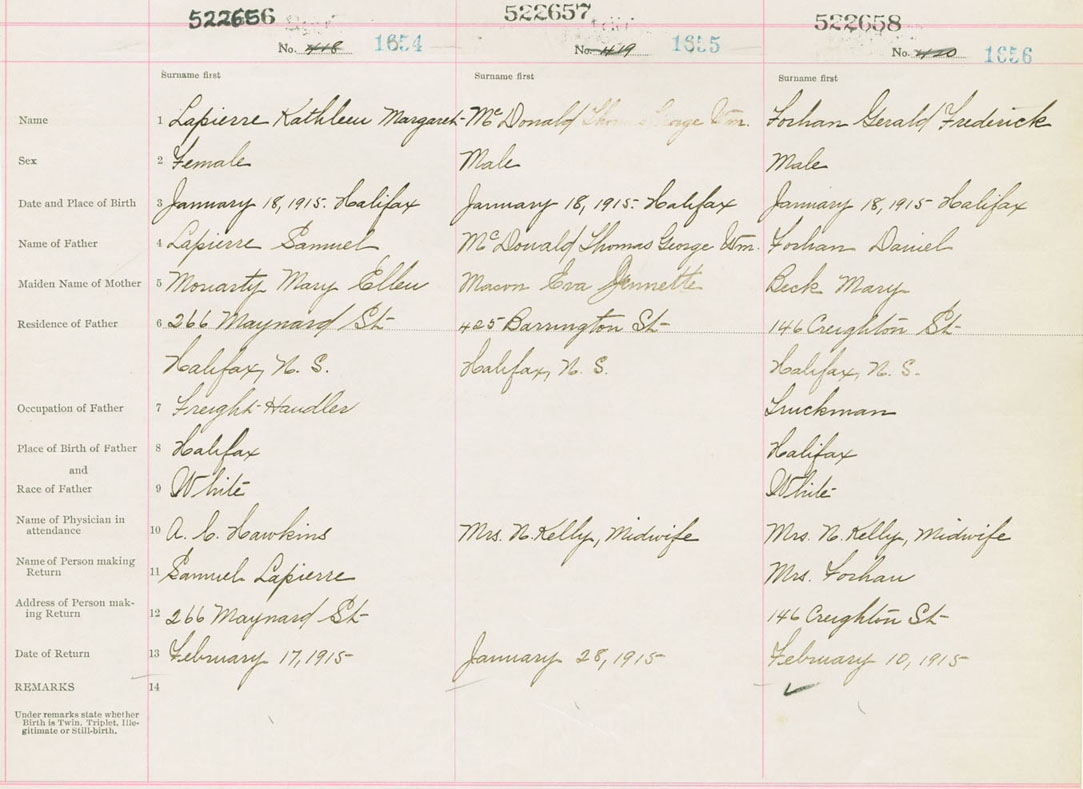 522656 522657 522658
No. 418 1654 No. 419 1655 No. 420 1656
Surname first Surname first Surname first
Name 1 Lapierre Kathleen Margaret McDonald Thomas George Wm. Forhan Gerald Frederick
Sex 2 Female Male Male
Date and Place of Birth 3 January 18, 1915. Halifax January 18, 1915. Halifax January 18, 1915 Halifax
Name of Father 4 Lapierre Samuel McDonald Thomas George Wm. Forhan Daniel
Maiden Name of Mother 5 Moriarty Mary Ellen Mason Eva Jennette Beck Mary
Residence of Father 6 266 Maynard St 425 Barrington St 146 Creighton St
Halifax, N. S. Halifax, N. S. Halifax, N. S.
Occupation of Father 7 Freight Handler Truckman
Place of Birth of Father 8 Halifax Halifax
and
Race of Father 9 White White
Name of Physician in
attendance 10 A. C. Hawkins Mrs. N. Kelly, Midwife Mrs. N. Kelly, Midwife
Name of Person making
Return 11 Samuel Lapierre Mrs. Forhan
Address of Person mak-
ing Return 12 266 Maynard St 146 Creighton St
Date of Return 13 February 17, 1915 January 28, 1915 February 10, 1915
REMARKS 14
Under remarks state whether
Birth is Twin, Triplet, Ille-
gitimate or Still-birth.